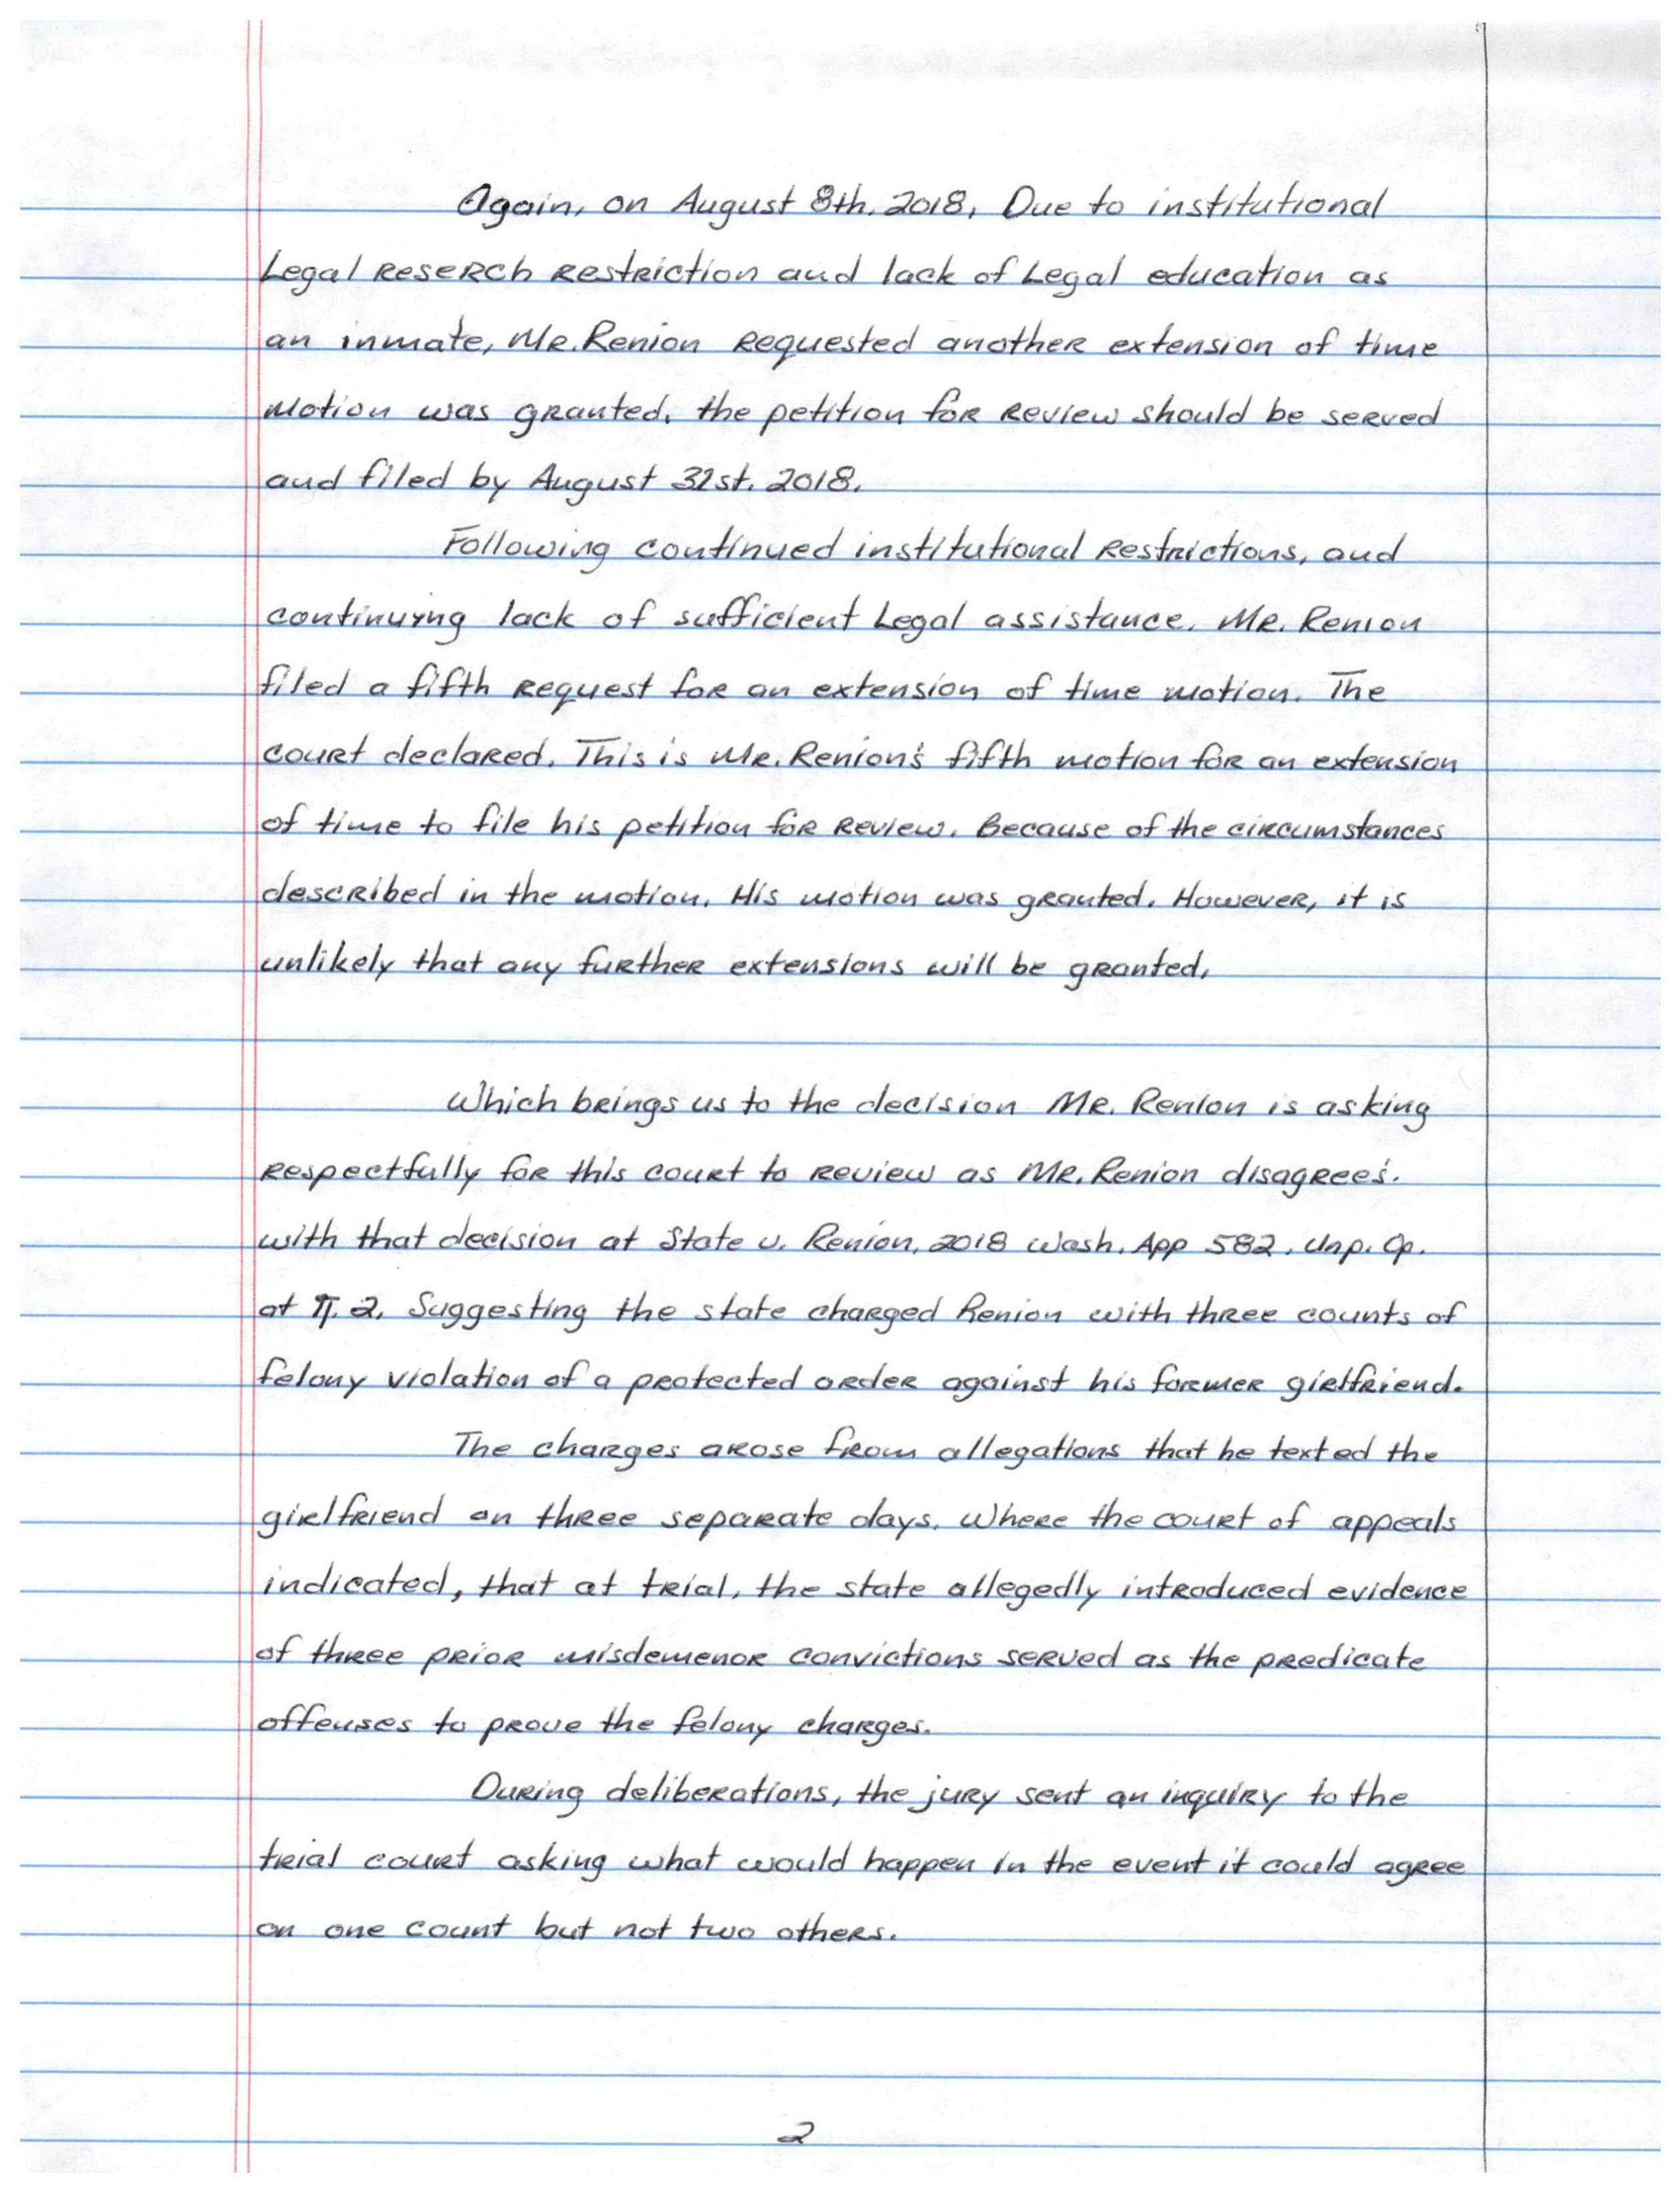 Again, on August 8th, 2018, Due to institutional
Legal Reserch Restriction and lack of Legal education as
an inmate, Mr. Renion Requested another extension of time
motion was granted. the petition for Review should be served
and filed by August 31st. 2018.
Following continued institutional Restrictions, and
continuyng lack of sufficient Legal assistance. Mr. Renion
filed a fifth Request for an extension of time motion. The
court declared. This is Mr. Renion's fifth motion for an extension
of time to file his petition for Review. Because of the circumstances
described in the motion. His motion was granted. However, it is
unlikely that any further extensions will be granted.
Which brings us to the decision Mr. Renion is asking
Respectfully for this court to Review as Mr. Renion disagree's.
with that decision at State v. Renion, 2018 Wash. App 582. Unp. Op.
at ¶. 2. Suggesting the state charged Renion with three counts of
felony violation of a protected order against his former girlfriend.
The charges arose from allegations that he texted the
girlfriend on three separate days. Where the court of appeals
indicated, that at trial, the state allegedly introduced evidence
of three prior misdemenor convictions served as the predicate
offenses to prove the felony charges.
During deliberations, the jury sent an inquiry to the
trial court asking what would happen in the event it could agree
on one count but not two others.
2